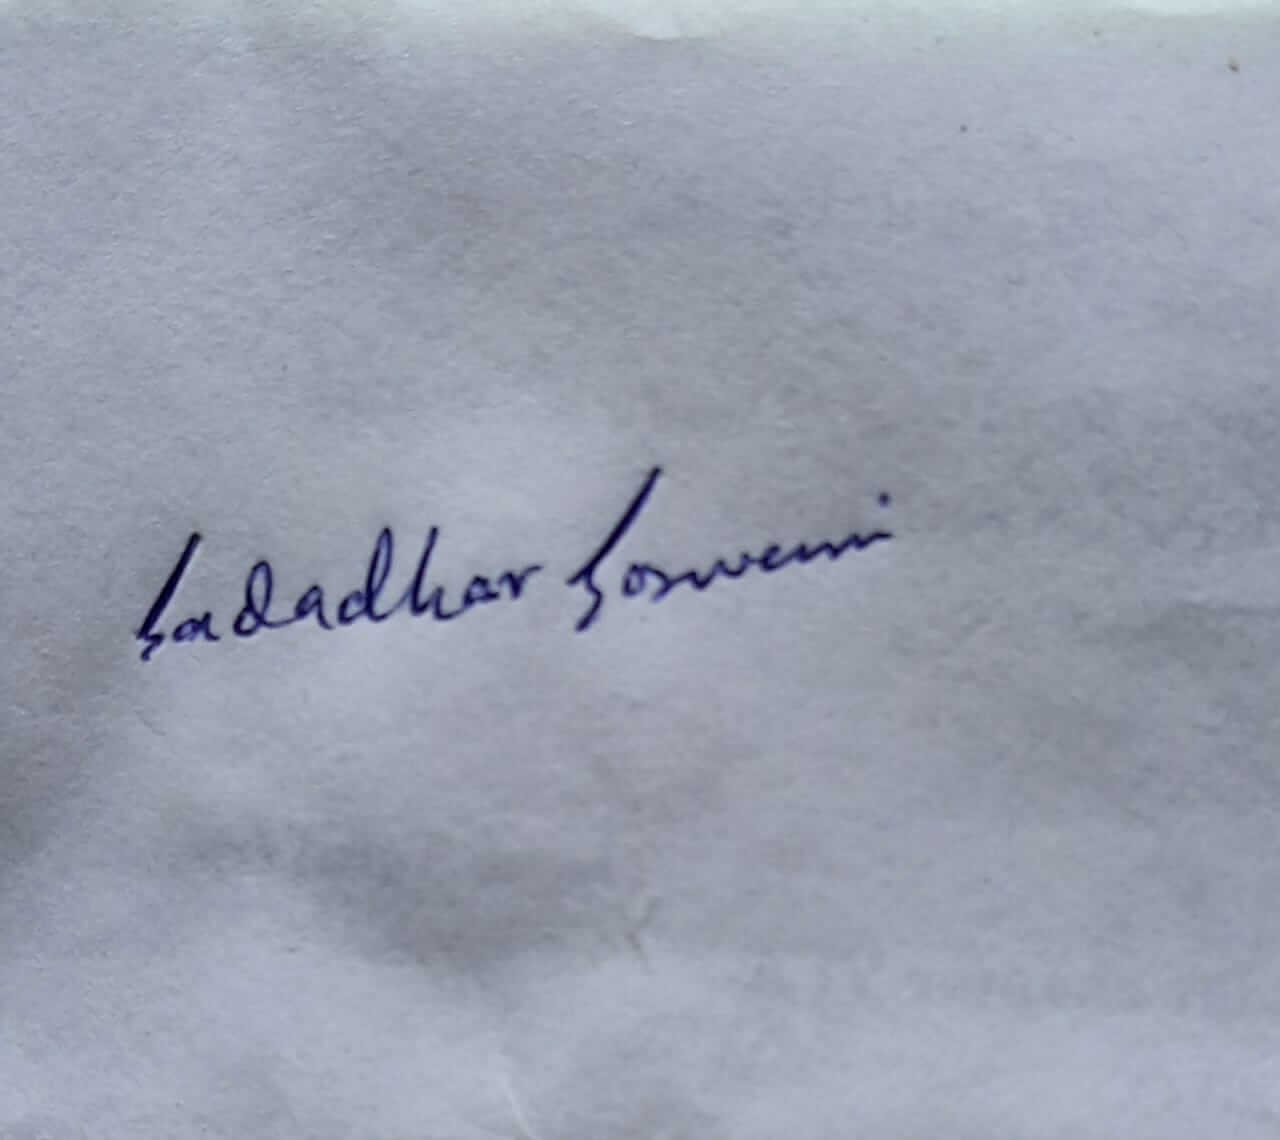 Gadadhar Goswami